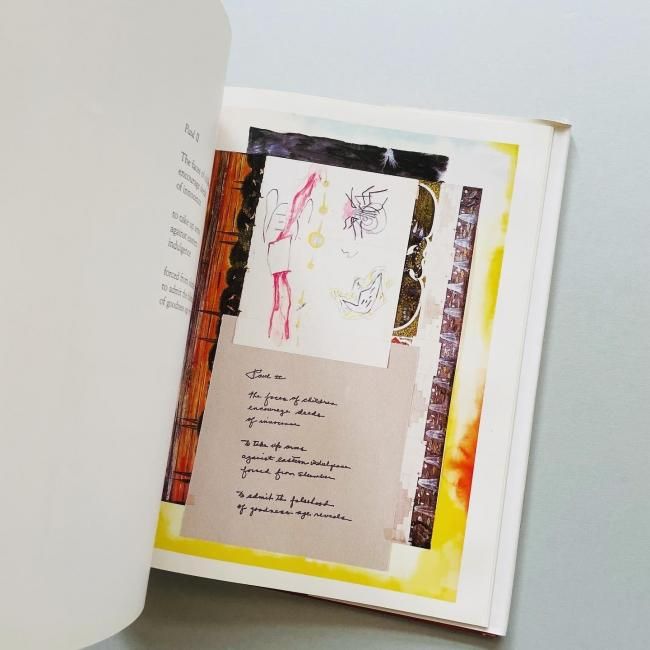 Paul II
The faces of
encourage
of innocence
to take up
against
indulgence
forced from
to admit the
of goodness
Paul II
the faces of children
encourage deeds
of innocence
to take up arms
against eastern indulgence
forced from slumber
to admit the falsehood
of goodness age reveals